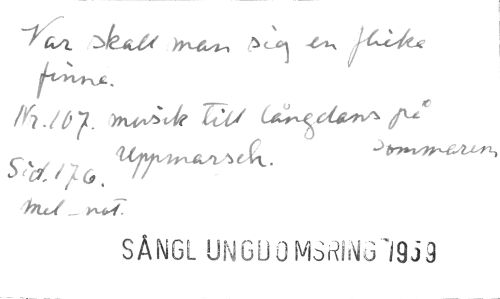 Var skall man sig en flicka
finna.
Nr. 107. musik till långdans på
Uppmarsch. Sommaren
Sid. 176.
Mel-not.
SÅNGL UNGDOMSRING 1959